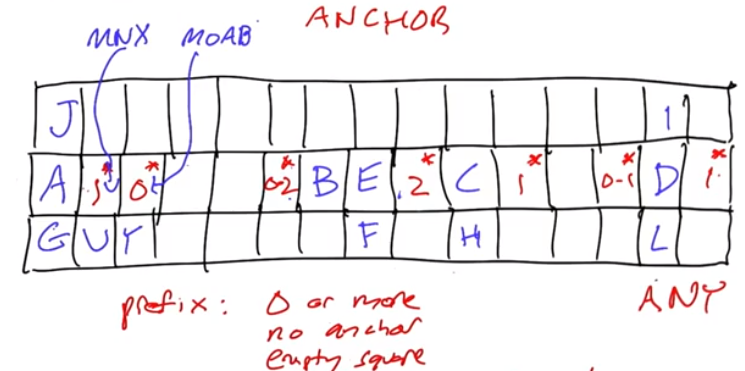 ANCHOR
MNX MOAB
J I
A 1* 0* 0-2* B E 2* C 1* 0-1* D 1*
G U Y F H L
prefix: 0 or more
no anchor
empty square
ANY